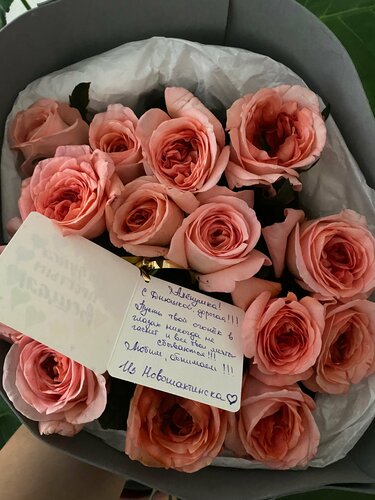 Алёнушка!
С днюшкой, дорогая!!!
Пусть твой огонёк в
глазах никогда не
гаснет и все твои мечты
сбываются!!!
Любим, обнимаем!!!
Из Новошахтинска ♡